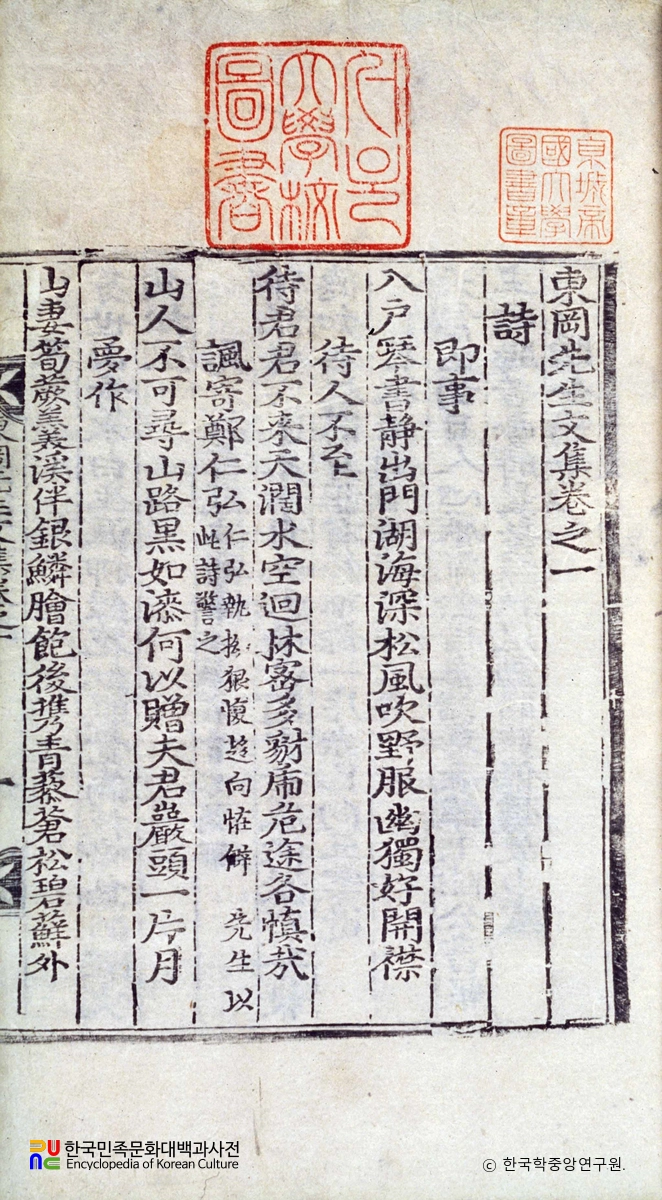 東岡先生文集卷之一
詩
即事
入戶琴書静出門湖海深松風吹野服幽獨好開襟
待人不至
待君君不來天濶水空迴林密多豺乕危途各愼㢤
諷寄鄭仁弘仁弘執拗狠愎趍向恠僻 先生以
此詩警之
山人不可尋山路黑如漆何以贈夫君巖頭一片月
夢作
山妻筍蕨羙羙溪伴銀鱗膾飽後携乃青藜蒼松碧蘚外
大學校
圖書
京城帝
國大學
圖書章
한국민족문화대백과사전
Encyclopedia of Korean Culture
© 한국학중앙연구원.